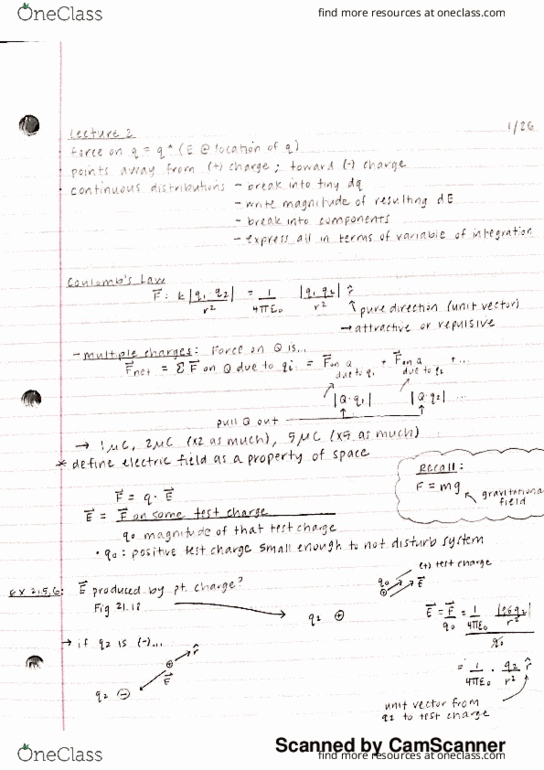 OneClass
find more resources at oneclass.com
Lecture 2
1/26
force on q = q * (E @ location of q)
points away from (+) charge; toward (-) charge
continuous distributions - break into tiny dq
- write magnitude of resulting dE
- break into components
- express all in terms of variable of integration
Coulomb's Law
F⃗: k |q₁ q₂| / r² = 1 / 4πε₀ |q₁ q₂| / r² r̂
↑ pure direction (unit vector)
→ attractive or repulsive
- multiple charges: Force on Q is...
F⃗net = Σ F⃗ on Q due to qi = F⃗ on Q due to q₁ + F⃗ on Q due to q₂ + ...
|Q·q₁| |Q·q₂| ...
pull Q out
→ 1μC, 2μC (x2 as much), 5μC (x5 as much)
* define electric field as a property of space
Recall:
F = mg
gravitational field
F⃗ = q · E⃗
E⃗ = F⃗ on some test charge
q₀ magnitude of that test charge
• q₀: positive test charge small enough to not disturb system
Ex 21.5,6: E⃗ produced by pt. charge?
Fig 21.18
(+) test charge
q₀ ⊕ E⃗
q₂ ⊕
E⃗ = F⃗ / q₀ = 1 / 4πε₀ |q₀ q₂| / r² / q₀
→ if q₂ is (-)...
r̂
⊕
E⃗
q₂ ⊖
= 1 / 4πε₀ · q₂ / r² r̂
unit vector from
q₂ to test charge
Scanned by CamScanner
OneClass
find more resources at oneclass.com